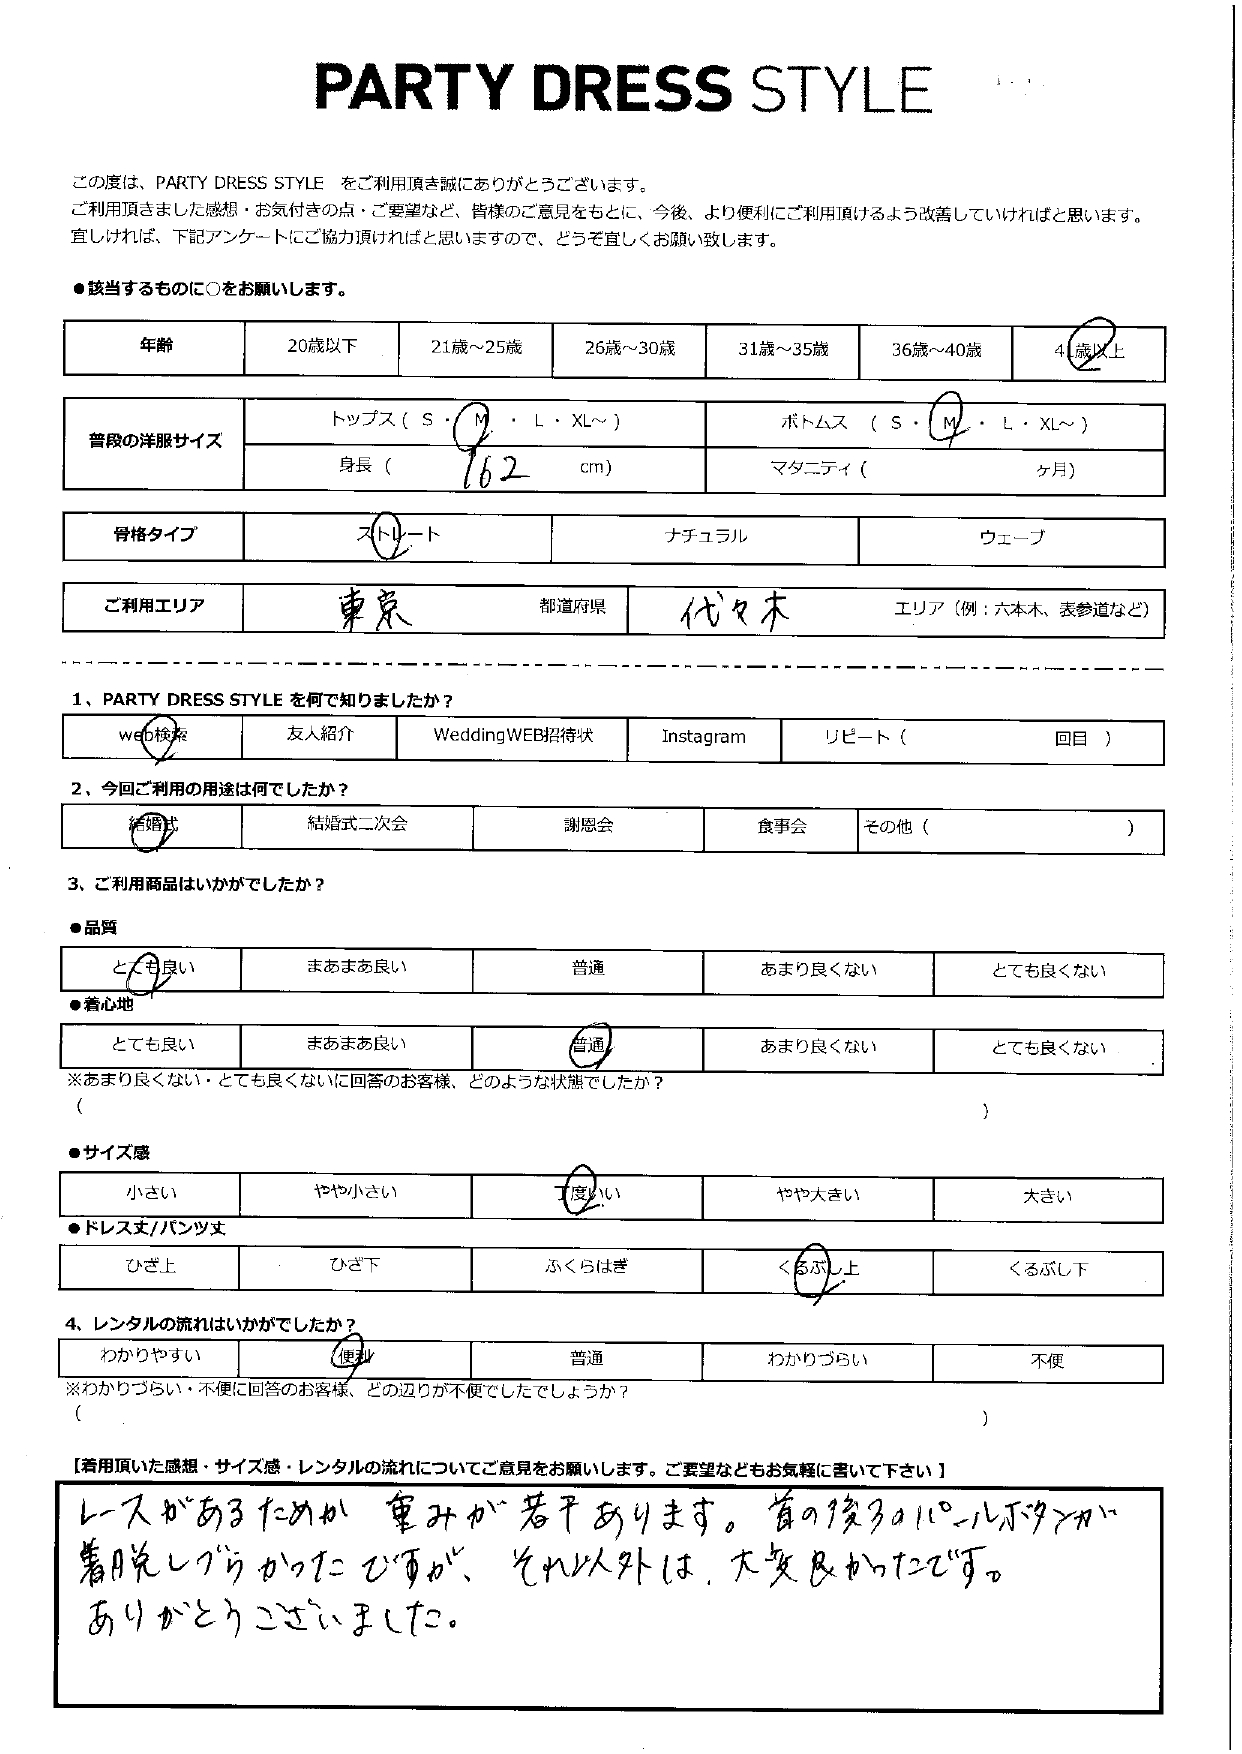 PARTY DRESS STYLE
この度は、PARTY DRESS STYLE　をご利用頂き誠にありがとうございます。
ご利用頂きました感想・お気付きの点・ご要望など、皆様のご意見をもとに、今後、より便利にご利用頂けるよう改善していければと思います。
宜しければ、下記アンケートにご協力頂ければと思いますので、どうぞ宜しくお願い致します。
●該当するものに○をお願いします。
年齢 20歳以下 21歳～25歳 26歳～30歳 31歳～35歳 36歳～40歳 41歳以上
普段の洋服サイズ トップス ( S ・ M ・ L ・ XL～ ) ボトムス ( S ・ M ・ L ・ XL～ )
身長 ( 162 cm) マタニティ ( ヶ月)
骨格タイプ ストレート ナチュラル ウェーブ
ご利用エリア 東京 都道府県 代々木 エリア（例：六本木、表参道など）
1、PARTY DRESS STYLE を何で知りましたか？
web検索 友人紹介 WeddingWEB招待状 Instagram リピート（ 回目 ）
2、今回ご利用の用途は何でしたか？
結婚式 結婚式二次会 謝恩会 食事会 その他（ ）
3、ご利用商品はいかがでしたか？
●品質
とても良い まあまあ良い 普通 あまり良くない とても良くない
●着心地
とても良い まあまあ良い 普通 あまり良くない とても良くない
※あまり良くない・とても良くないに回答のお客様、どのような状態でしたか？
( )
●サイズ感
小さい やや小さい 丁度いい やや大きい 大きい
●ドレス丈/パンツ丈
ひざ上 ひざ下 ふくらはぎ くるぶし上 くるぶし下
4、レンタルの流れはいかがでしたか？
わかりやすい 便利 普通 わかりづらい 不便
※わかりづらい・不便に回答のお客様、どの辺りが不便でしたでしょうか？
( )
【着用頂いた感想・サイズ感・レンタルの流れについてご意見をお願いします。ご要望などもお気軽に書いて下さい】
レースがあるためか 重みが若干あります。首の後ろのパールボタンが
着脱しづらかったですが、それ以外は、大変良かったです。
ありがとうございました。